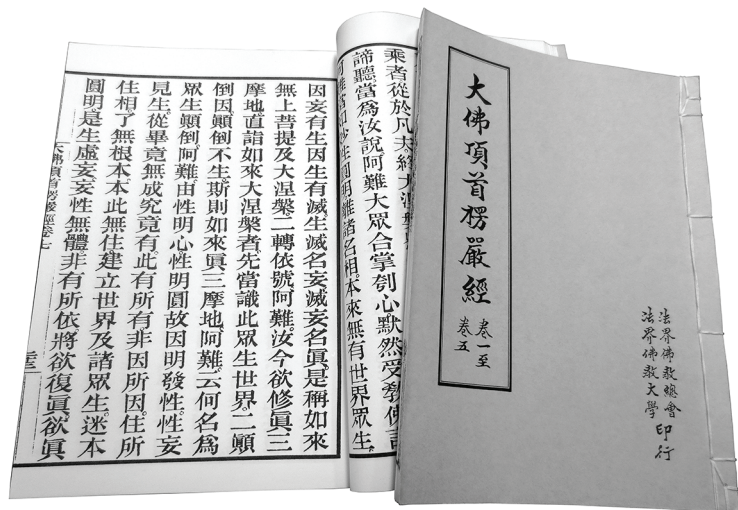 大佛頂首楞嚴經
卷一至
卷五
法界佛教總會
法界佛教大學
印行
乘者從於凡夫終大涅槃
諦聽當為汝說阿難大眾合掌刳心。默然受教佛言
阿難當知妙性圓明離諸名相。本來無有世界眾生。
因妄有生因生有滅。生滅名妄。滅妄名眞。是稱如來
無上菩提及大涅槃。二轉依號。阿難。汝今欲修眞三
摩地。直詣如來大涅槃者。先當識此眾生世界。二顚
倒因。顚倒不生。斯則如來眞三摩地。阿難。云何名為
眾生顚倒。阿難。由性明心性明圓故。因明發性。性妄
見生。從畢竟無成究竟有。此有所有。非因所因。住所
住相。了無根本。本此無住。建立世界及諸眾生。迷本
圓明。是生虛妄。妄性無體。非有所依。將欲復眞。欲眞
大佛頂首楞嚴經卷七